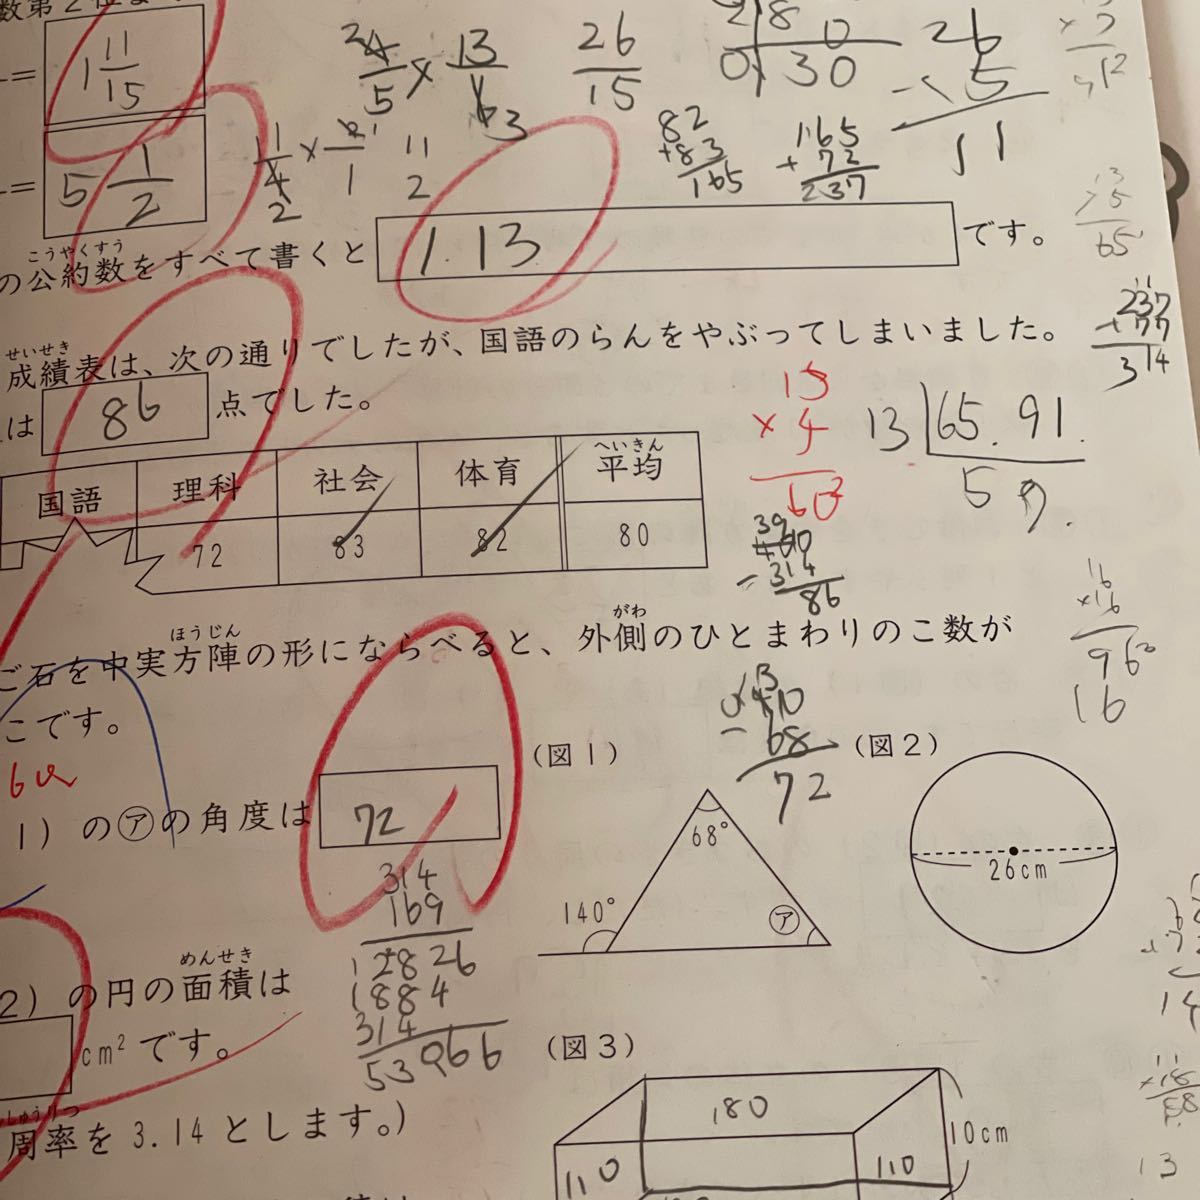 数第2位
= 1 11/15
2 4/5 × 13/6 3
26/15
26
280
30
5
11
= 5 1/2
11/4 2 × 6/1 1
11/2
82
+83
165
165
+72
237
こうやくすう
の公約数をすべて書くと 1. 13 です。
65
237
77
314
せいせき
成績表は、次の通りでしたが、国語のらんをやぶってしまいました。
は 86 点でした。
15
×4
60
13 65.91
5 9.
へいきん
国語 理科 社会 体育 平均
72 83 82 80
39
400
-314
86
16
×16
96
16
ほうじん がわ
ご石を中実方陣の形にならべると、外側のひとまわりのこ数が
こです。
140
-68
72
(図1) (図2)
1)の㋐の角度は 72
68°
140°
㋐
26cm
314
169
2826
1884
314
53066
めんせき
2)の円の面積は
cm²です。
(図3)
しゅうりつ
周率を3.14とします。)
180
110
110
10cm
13